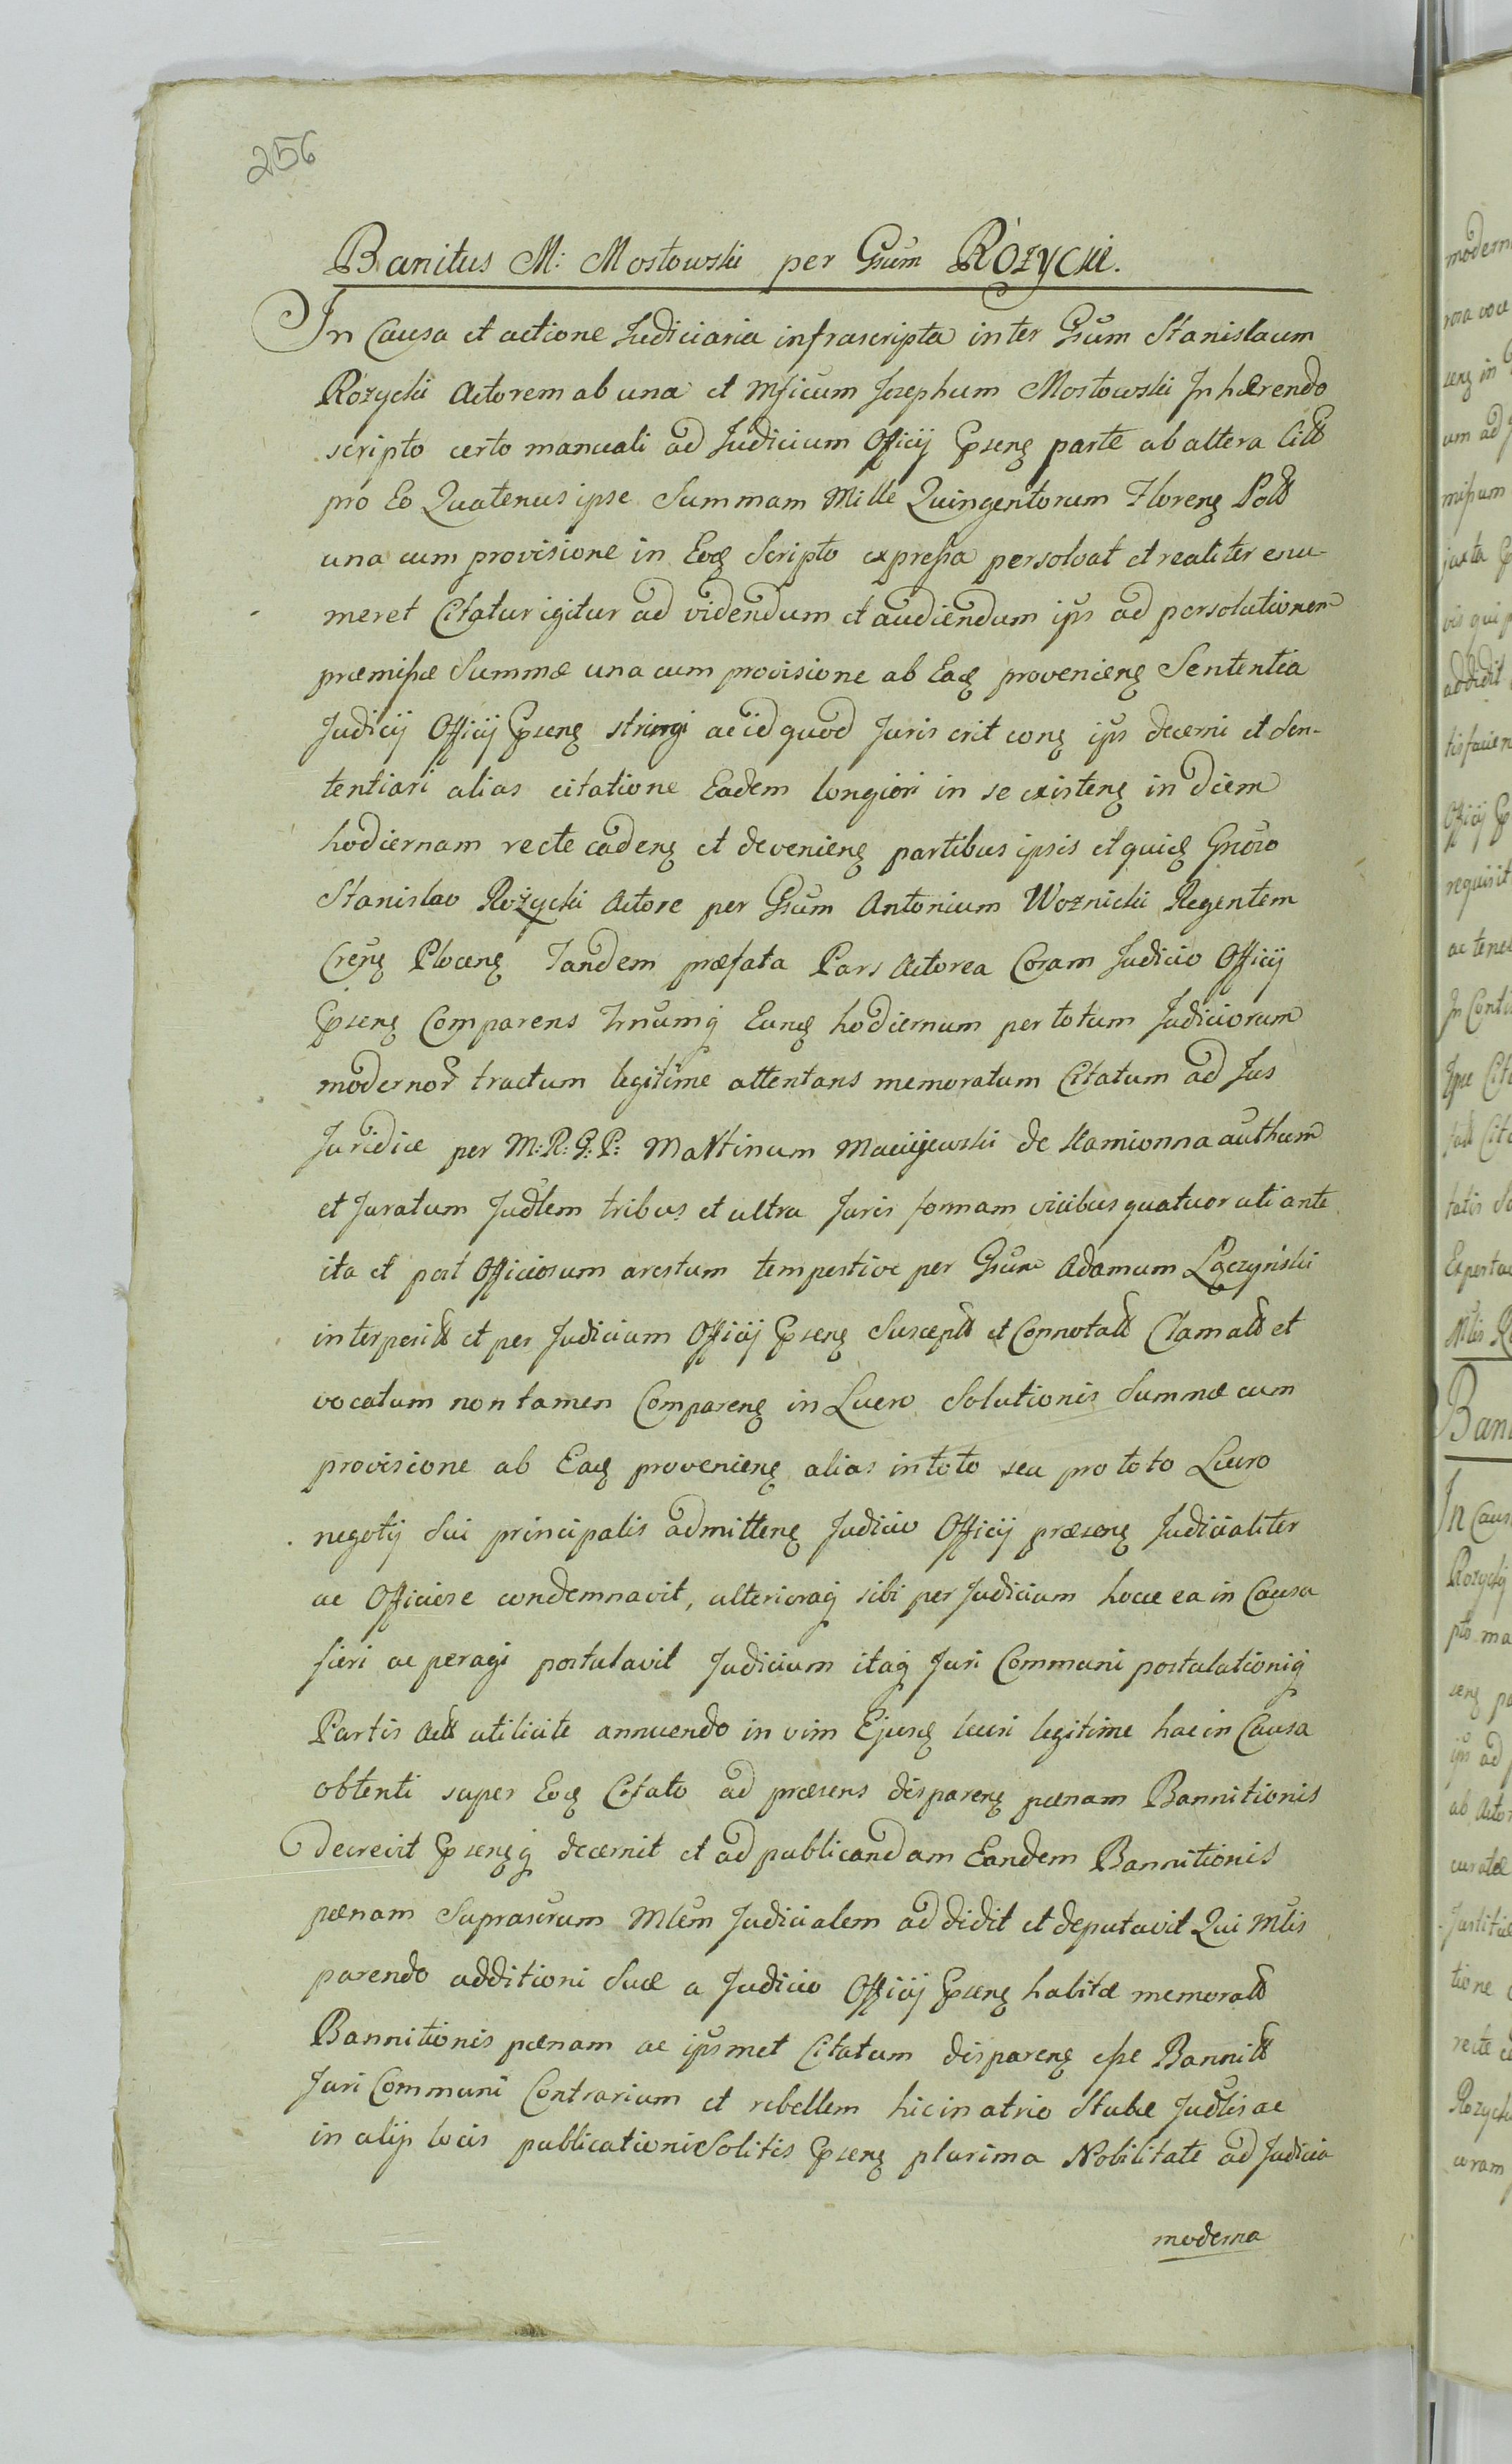 256
Banitus M: Mostowski per Gsum RÓŻYCKI.
In Causa et actione Judiciaria infrascripta inter Gsum Stanislaum
Różycki Actorem ab una et Mficum Josephum Mostowski Inhærendo
scripto certo manuali ad Judicium Officij Psens parte ab altera Citt
pro Eo Quatenus ipse Summam Mille Quingentorum Floren Poll
una cum provisione in Eod Scripto expressa persolvat et realiter enu-
meret Citatur igitur ad videndum et audiendum ips ad persolutionem
præmissæ Summæ una cum provisione ab Ead proveniens Sententia
Judicij Officij Psens stringi ac id quod Juris erit cons ips decerni et Sen-
tentiari alias citatione Eadem longiori in se existens in diem
hodiernam recte cadens et deveniens partibus ipsis et quid Gnoso
Stanislao Rożycki Actore per Gsum Antonium Woznicki Regentem
Crens Plocens Tandem præfata Pars Actorea Coram Judicio Officij
Psens Comparens Trnumq Eund hodiernum per totum Judiciorum
modernor tractum legitime attentans memoratum Citatum ad Jus
Juridice per M: R: G: P: Martinum Maciijewski de Kamionna authum
et Juratum Judlem tribus et ultra Juris formam vicibus quatuor uti ante
ita et post Officiosum arestum tempestive per Gsum Adamum Łączyński
interposit et per Judicium Officij Psens Suscept et Connotatt Clamatt et
vocatum non tamen Comparens in Lucro Solutionis Summæ cum
provisione ab Ead proveniens alias in toto seu pro toto Lucro
negotij Sui principalis admittens Judicio Officij præsens Judicialiter
ac Officiose condemnavit, ulterioraq sibi per Judicium hocce ea in Causa
fieri ac peragi postulavit Judicium itaq Juri Communi postulationiq
Partis Actt utilicite annuendo in vim Ejusd lucri legitime hac in Causa
obtenti super Eod Citato ad præsens disparens pænam Bannitionis
decrevit Psensq decernit et ad publicandam Eandem Bannitionis
pænam Suprascrum Mlem Judicialem addidit et deputavit Qui Mlis
parendo additioni Suæ a Judicio Officij Psens habitæ memoratt
Bannitionis pænam ac ipsmet Citatum disparens esse Bannitt
Juri Communi Contrarium et rebellem hic in atrio Stubæ Judlis ac
in alijs locis publicationi Solitis Psens plurima Nobilitate ad Judicia
moderna